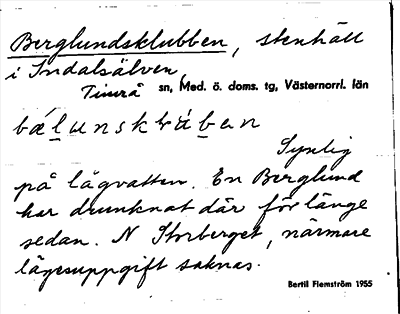 Berglundsklubben, stenhäll
i Indalsälven,
Timrå sn, Med. ö. doms. tg, Västernorrl. län
bä́lunskrúben
Synlig
på lågvatten. En Berglund
har drunknat där för länge
sedan. N Storberget, närmare
lägesuppgift saknas.
Bertil Flemström 1955